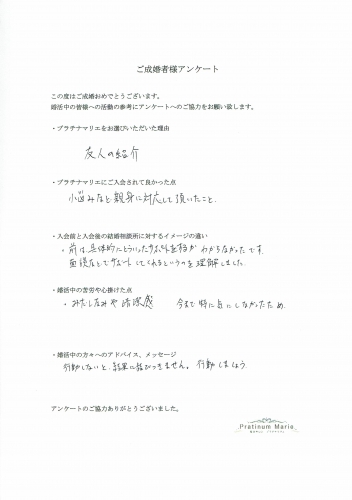 ご成婚者様アンケート
この度はご成婚おめでとうございます。
婚活中の皆様への活動の参考にアンケートへのご協力をお願い致します。
・プラチナマリエをお選びいただいた理由
友人の紹介
・プラチナマリエにご入会されて良かった点
小さな悩みなど親身に対応して頂いたこと
・入会前と入会後の結婚相談所に対するイメージの違い
・前は具体的にどういったサポートを わからなかったです。
面談などでサポートしてくれるというのを理解しました。
・婚活中の苦労や心掛けた点
・みだしなみや清潔感 今まで特に気にしなかったため
・婚活中の方々へのアドバイス、メッセージ
行動しないと、結果に結びつきません。行動しましょう
アンケートのご協力ありがとうございました。
Pratinum Marie